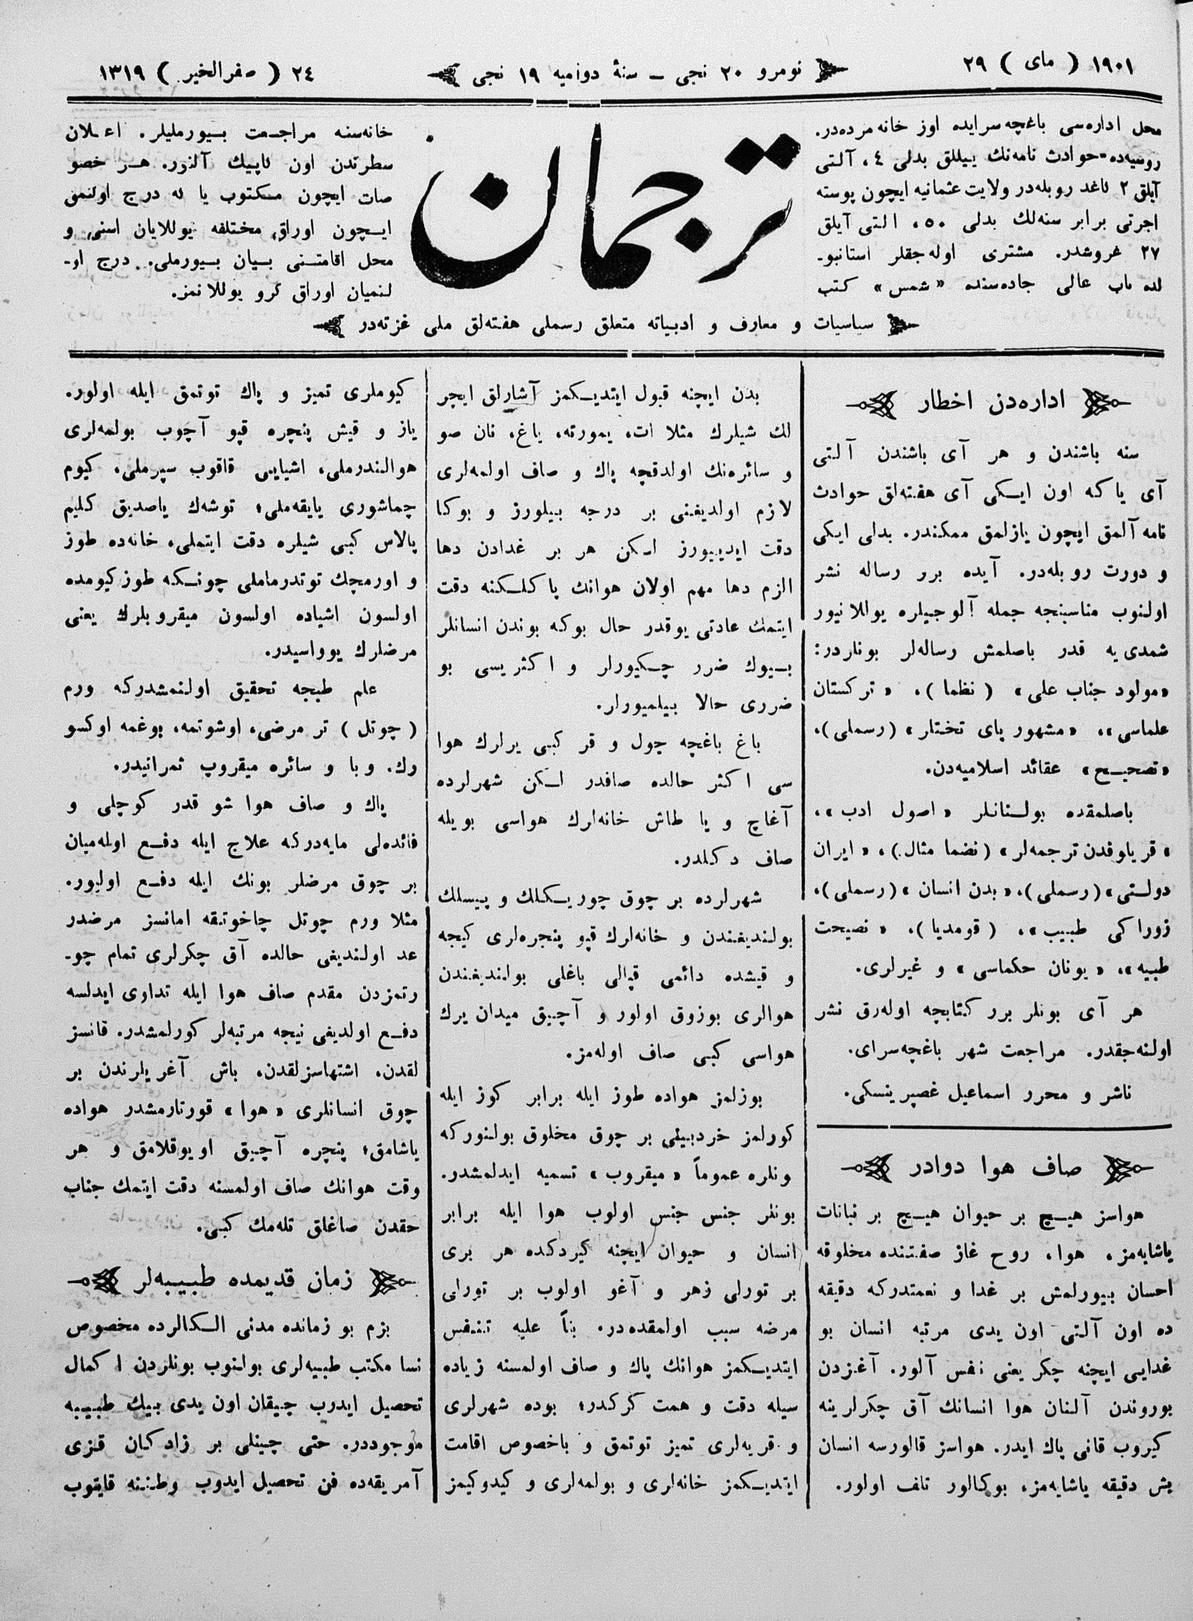 ١٩٠١ ( مای ) ٢٩
نومرو ٢٠ نجی ـ سنهٔ دوامیه ١٩ نجی
٢٤ ( صفرالخیر ) ١٣١٩
محل اداره‌سی باغچه‌سرایده اوز خانه‌مزده‌در.
روسیه‌ده-حوادث نامه‌نك ییللق بدلی ٤، آلتی
آیلق ٢ كاغد روبله‌در ولایت عثمانیه ایچون پوسته
اجرتی برابر سنه‌لك بدلی ٥٠، التی آیلق
٢٧ غروشدر. مشتری اوله‌جقلر استانبو-
لده باب عالی جاده‌سنده «شمس» كتب
ترجمان
خانه‌سنه مراجعت بیورملیلر. اعلان
سطرندن اون كاپیك آلنور. هر خصو
صات ایچون مكتوب یا كه درج اولنمق
ایچون اوراق مختلفه یوللایان اسنی و
محل اقامتنی بیان بیورملی. درج او-
لنمیان اوراق كرو یوللانمز.
سیاسیات و معارف و ادبیاته متعلق رسملی هفته‌لق ملی غزته‌در
اداره‌دن اخطار
سنه باشندن و هر آی باشندن آلتی
آی یاكه اون ایكی آی هفته‌لق حوادث
نامه آلمق ایچون یازلمق ممكندر. بدلی ایكی
و دورت روبله‌در. آیده برر رساله نشر
اولنوب مناسبنجه جمله آلوجیلره یوللانیور
شمدی‌یه قدر باصلمش رساله‌لر بوناردر:
«مولود جناب علی» (نظما)، «تركستان
علماسی»، «مشهور پای تختلر» (رسملی)،
«تصحیح» عقائد اسلامیه‌دن.
باصلمقده بولنانلر «اصول ادب»،
«قریلوفدن ترجمه‌لر» (نضما مثال)، «ایران
دولتی» (رسملی)، «بدن انسان» (رسملی)،
زوراكی طبیب»، (قومدیا)، «نصیحت
طبیه»، «یونان حكماسی» و غیرلری.
هر آی بونلر برر كتابچه اوله‌رق نشر
اولنه‌جقدر. مراجعت شهر باغچه‌سرای.
ناشر و محرر اسماعیل غصپرینسكی.
صاف هوا دوادر
هواسز هیچ بر حیوان هیچ بر نباتات
یاشایه‌مز، هوا، روح غاز صفتنده مخلوقه
احسان بیورلمش بر غدا و نعمتدركه دقیقه
ده اون آلتی اون یدی مرتبه انسان بو
غدایی ایچنه چكر یعنی نفس آلور. آغزدن
بوروندن آلنان هوا انسانك آق چكرلرینه
كیروب قانی پاك ایدر. هواسز قالورسه انسان
بش دقیقه یاشایه‌مز، بوكالور تلف اولور.
بدن ایچنه قبول ایتدیكمز آشارلق ایچر
لك شیلرك مثلا ات، یمورته، یاغ، نان صو
و سائره‌نك اولدقچه پاك و صاف اولمه‌لری
لازم اولدیغنی بر درجه بیلورز و بوكا
دقت ایدییورز لكن هر بر غدادن دها
الزم دها مهم اولان هوانك پاكلكنه دقت
ایتمك عادتی یوقدر حال بوكه بوندن انسانلر
بیوك ضرر چكیورلر و اكثریسی بو
ضرری حالا بیلمیورلر.
باغ باغچه چول و قر كبی یرلرك هوا
سی اكثر حالده صافدر لكن شهرلرده
آغاچ و یا طاش خانه‌لرك هواسی بویله
صاف دكلدر.
شهرلرده بر چوق چوریكلك و پیسلك
بولندیغندن و خانه‌لرك قپو پنجره‌لری كیجه
و قیشده دائمی قپالی باغلی بولندیغندن
هوالری بوزوق اولور و آچیق میدان یرك
هواسی كبی صاف اوله‌مز.
بوزلمز هواده طوز ایله برابر كوز ایله
كورلمز خردبینی بر چوق مخلوق بولنوركه
ونلره عموماً «میقروب» تسمیه ایدلمشدر.
بونلر جنس جنس اولوب هوا ایله برابر
انسان و حیوان ایچنه كیردكده هر بری
بر تورلی زهر و آغو اولوب بر تورلی
مرضه سبب اولمقده‌در. بناً علیه تنفس
ایتدیكمز هوانك پاك و صاف اولمسنه زیاده
سیله دقت و همت كركدر؛ بوده شهرلری
و قریه‌لری تمیز توتمق و باخصوص اقامت
ایتدیكمز خانه‌لری و بولمه‌لری و كیدوكیمز
كیوملری تمیز و پاك توتمق ایله اولور.
یاز و قیش پنچره قپو آچوب بولمه‌لری
هوالندرملی، اشیایی قاقوب سپرملی، كیوم
چماشوری یایقه‌ملی؛ توشه‌ك یاصدیق كلیم
پالاس كبی شیلره دقت ایتملی، خانه‌ده طوز
و اورمچك توتدرماملی چونكه طوز كیومده
اولسون اشیاده اولسون میقروبلرك یعنی
مرضلرك یوواسیدر.
علم طبجه تحقیق اولنمشدركه ورم
(چوتل) تر مرضی، اوشوتمه، بوغمه اوكسو
رك، وبا و سائره میقروپ ثمرانیدر.
پاك و صاف هوا شو قدر كوچلی و
فائده‌لی مایه‌دركه علاج ایله دفع اوله‌میان
بر چوق مرضلر بونك ایله دفع اولیور.
مثلا ورم چوتل چاخوتیقه امانسز مرضدر
عد اولندیغی حالده آق چكرلری تمام چو-
رتمزدن مقدم صاف هوا ایله تداوی ایدلسه
دفع اولدیغی نیجه مرتبه‌لر كورلمشدر. قانسز
لقدن، اشتهاسزلقدن، باش آغریلرندن بر
چوق انسانلری «هوا» قورتارمشدر هواده
یاشامق؛ پنچره آچیق اویوقلامق و هر
وقت هوانك صاف اولمسنه دقت ایتمك جناب
حقدن صاغلق تله‌مك كبی.
زمان قدیمده طبیبه‌لر
بزم بو زمانده مدنی الكالرده مخصوص
نسا مكتب طبیه‌لری بولنوب بونلردن اكمال
تحصیل ایدرب چیقان اون یدی بیك طبیبه
موجوددر. حتی چینلی بر زادكان قزی
آمریقه‌ده فن تحصیل ایدوب وطننه قایتوب